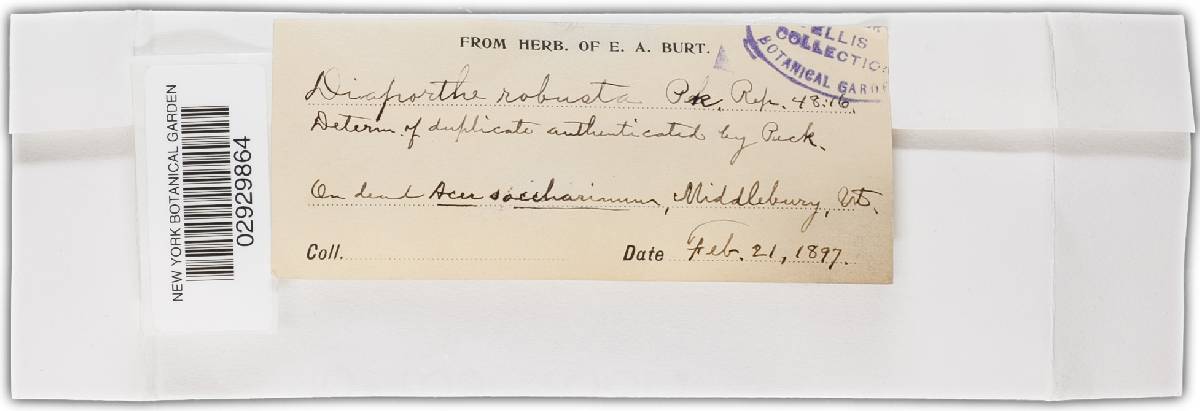 FROM HERB. OF E. A. BURT.
ELLIS
COLLECTIO
BOTANICAL GARDE
Diaporthe robusta Pk. Rep. 43:16.
Determ. of duplicate authenticated by Peck.
On dead Acer saccharinum, Middlebury, Vt.
Coll. Date Feb. 21, 1897.
NEW YORK BOTANICAL GARDEN
02929864